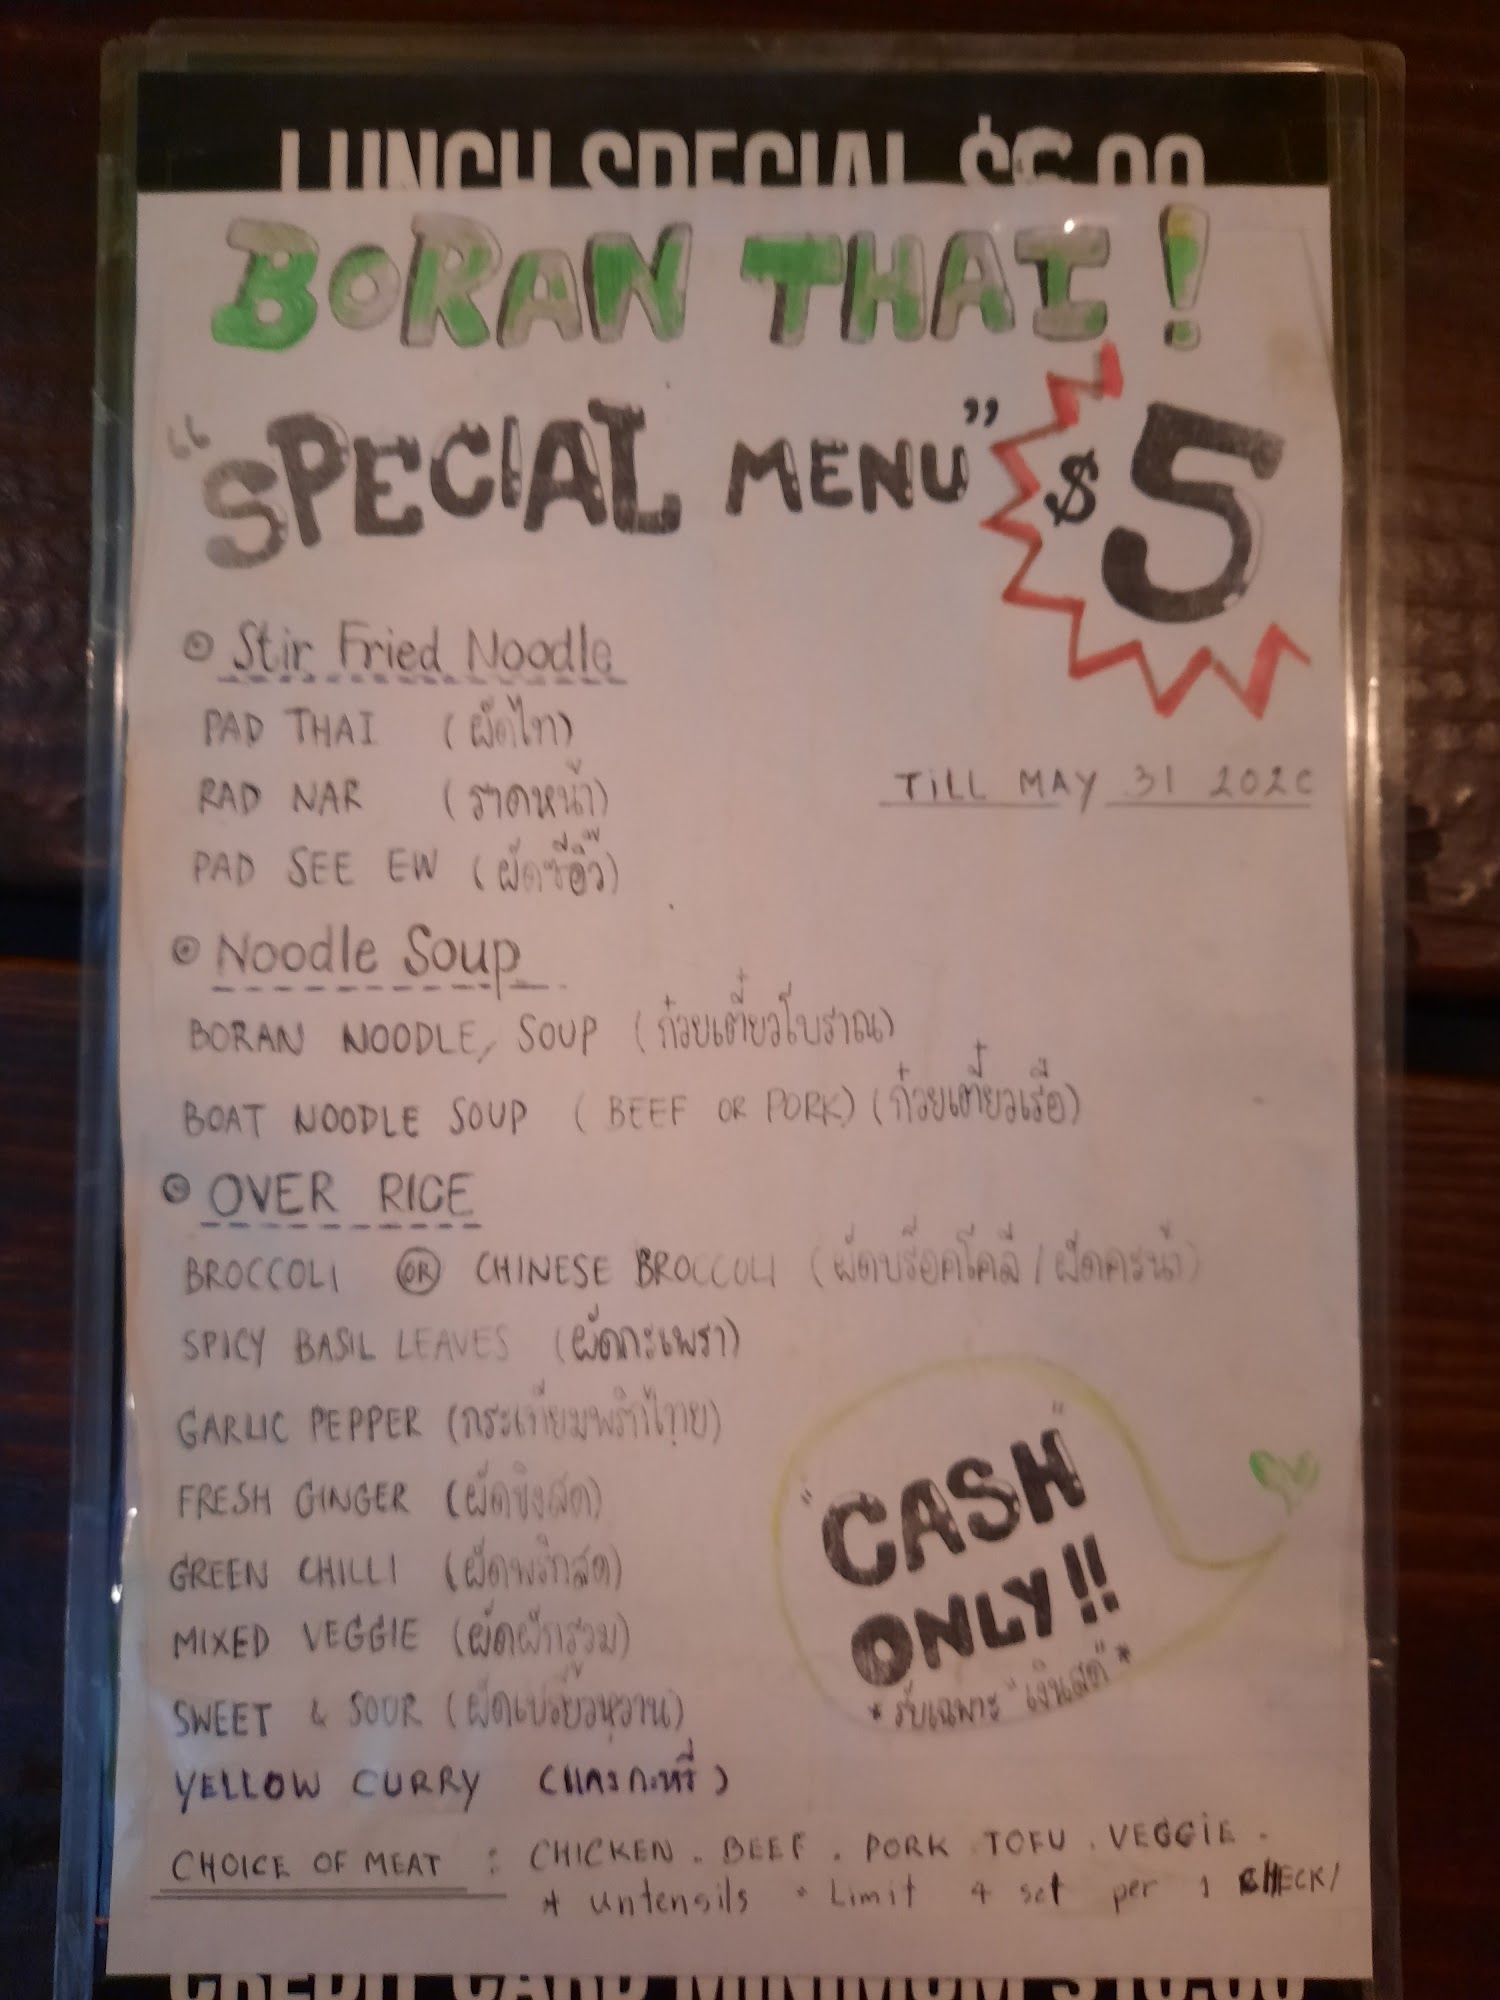 LUNCH SPECIAL
BORAN THAI!
"SPECIAL MENU" $5
Stir Fried Noodle
PAD THAI (ผัดไท)
RAD NAR (ราดหน้า)
TILL MAY 31
PAD SEE EW (ผัดซีอิ๊ว)
Noodle Soup
BORAN NOODLE, SOUP (ก๋วยเตี๋ยวโบราณ)
BOAT NOODLE SOUP (BEEF OR PORK) (ก๋วยเตี๋ยวเรือ)
OVER RICE
BROCCOLI OR CHINESE BROCCOLI (ผัดบร็อคโคลี / ผัดคะน้า)
SPICY BASIL LEAVES (ผัดกะเพรา)
GARLIC PEPPER (กระเทียมพริกไทย)
FRESH GINGER (ผัดขิงสด)
GREEN CHILLI (ผัดพริกสด)
MIXED VEGGIE (ผัดผักรวม)
SWEET & SOUR (ผัดเปรี้ยวหวาน)
YELLOW CURRY (แกงกะหรี่)
"CASH"
ONLY!!
* รับเฉพาะ "เงินสด" *
CHOICE OF MEAT : CHICKEN . BEEF . PORK . TOFU . VEGGIE .
* untensils * Limit 4 set per 1 CHECK/
CREDIT CARD MINIMUM $10.00